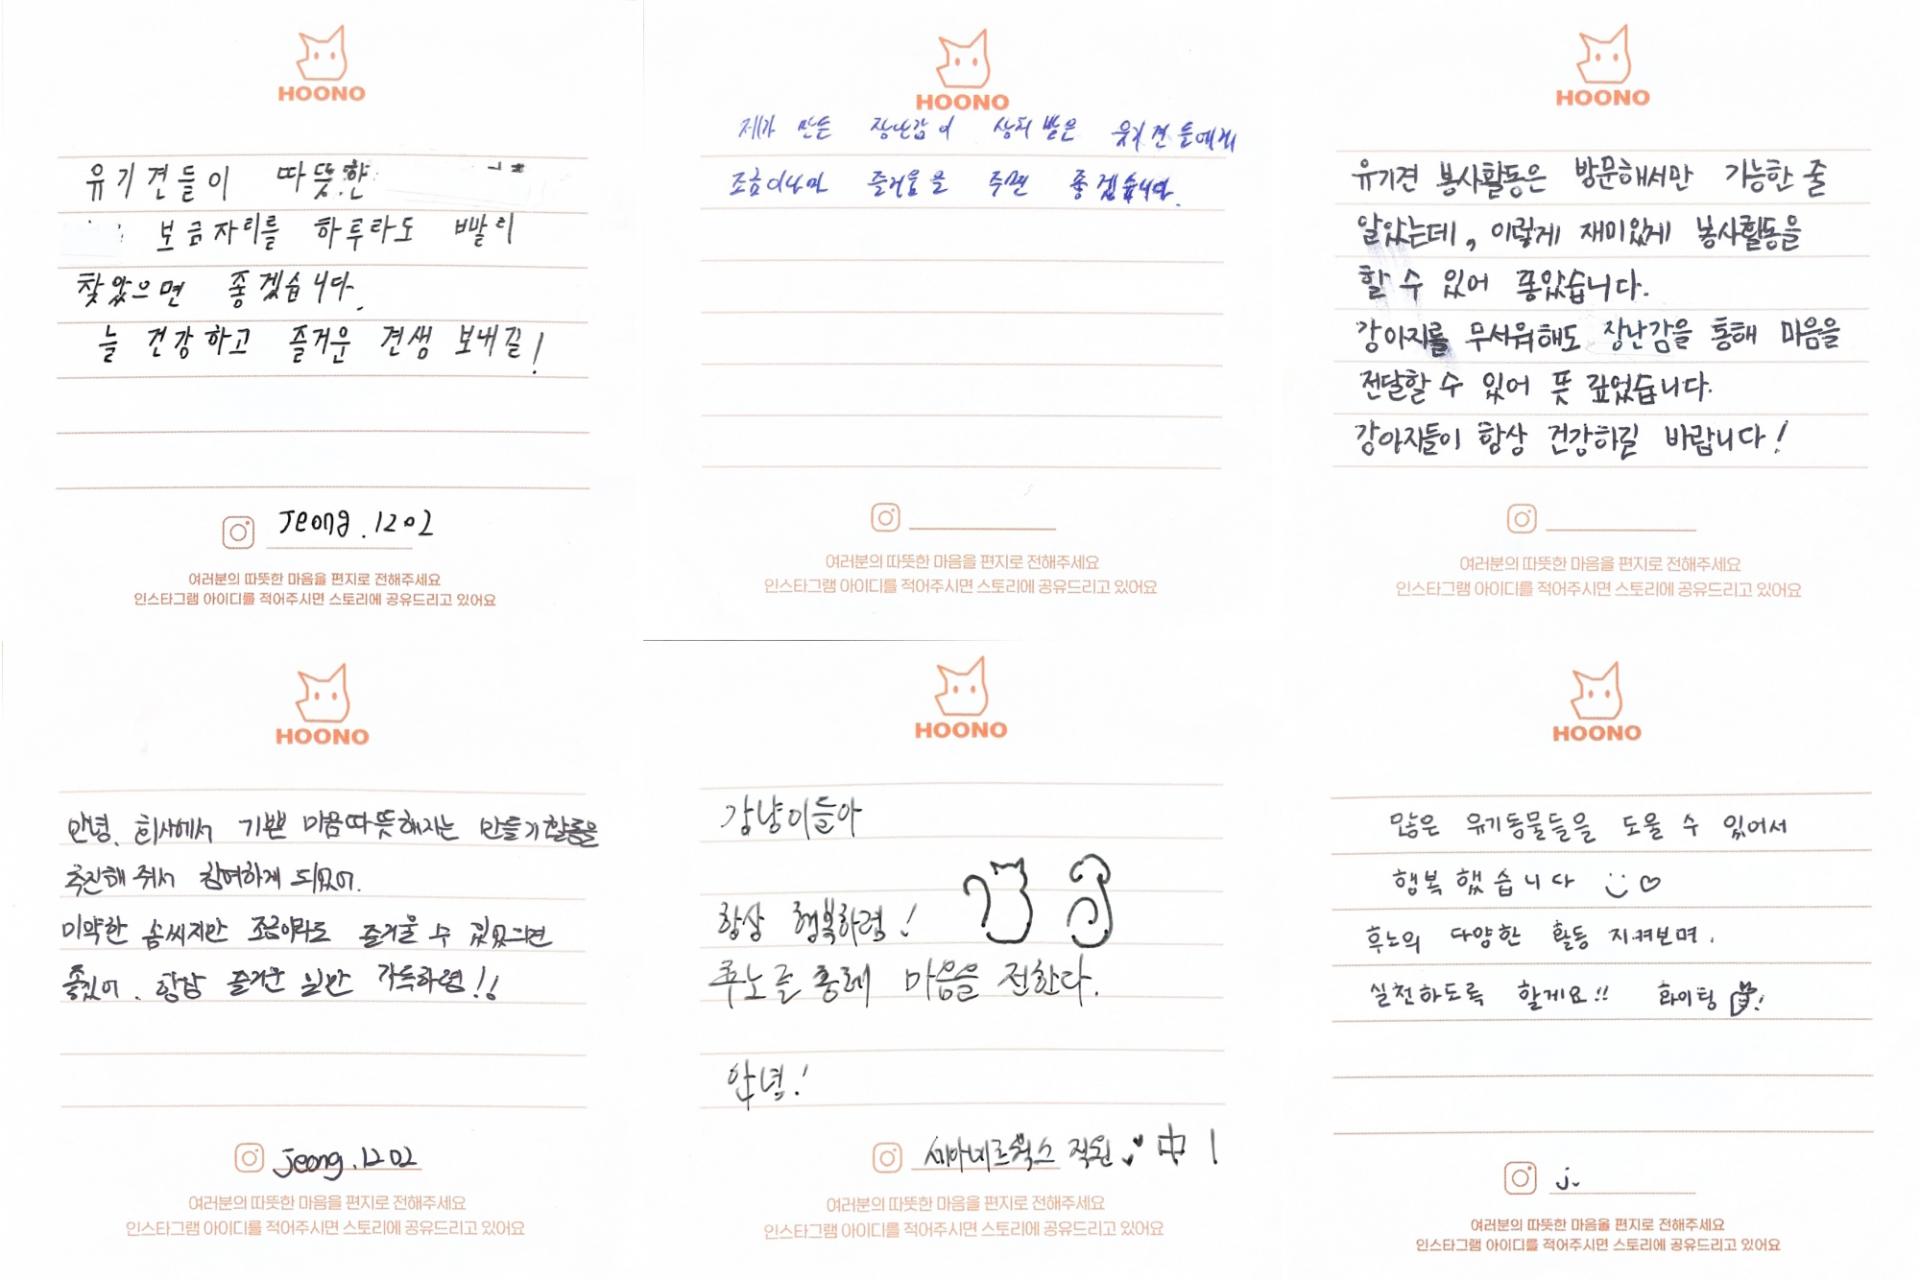 HOONO
유기견들이 따뜻한
보금자리를 하루라도 빨리
찾았으면 좋겠습니다.
늘 건강하고 즐거운 견생 보내길!
Jeong.1202
여러분의 따뜻한 마음을 편지로 전해주세요
인스타그램 아이디를 적어주시면 스토리에 공유드리고 있어요
HOONO
제가 만든 장난감이 상처 받은 유기견들에게
조금이나마 즐거움을 주면 좋겠습니다.
여러분의 따뜻한 마음을 편지로 전해주세요
인스타그램 아이디를 적어주시면 스토리에 공유드리고 있어요
HOONO
유기견 봉사활동은 방문해서만 가능한 줄
알았는데, 이렇게 재미있게 봉사활동을
할 수 있어 좋았습니다.
강아지를 무서워해도 장난감을 통해 마음을
전달할 수 있어 뜻 깊었습니다.
강아지들이 항상 건강하길 바랍니다!
여러분의 따뜻한 마음을 편지로 전해주세요
인스타그램 아이디를 적어주시면 스토리에 공유드리고 있어요
HOONO
안녕. 회사에서 기쁜 마음따뜻해지는 만들기활동을
추진해 줘서 참여하게 되었어.
미약한 솜씨지만 조금이라도 즐거울 수 있었으면
좋겠어. 항상 즐거운 일만 가득하렴!!
jeong.1202
여러분의 따뜻한 마음을 편지로 전해주세요
인스타그램 아이디를 적어주시면 스토리에 공유드리고 있어요
HOONO
강냥이들아
항상 행복하렴!
후노를 통해 마음을 전한다.
안녕!
직원
여러분의 따뜻한 마음을 편지로 전해주세요
인스타그램 아이디를 적어주시면 스토리에 공유드리고 있어요
HOONO
많은 유기동물들을 도울 수 있어서
행복했습니다
후노의 다양한 활동 지켜보며,
실천하도록 할게요!! 화이팅!
j.
여러분의 따뜻한 마음을 편지로 전해주세요
인스타그램 아이디를 적어주시면 스토리에 공유드리고 있어요